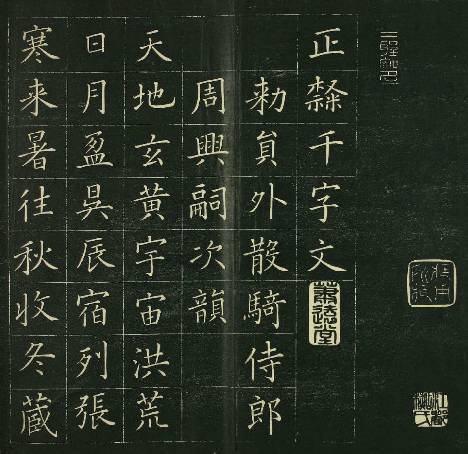 正隸千字文
勑員外散騎侍郎
周興嗣次韻
天地玄黃宇宙洪荒
日月盈昃辰宿列張
寒来暑往秋收冬藏